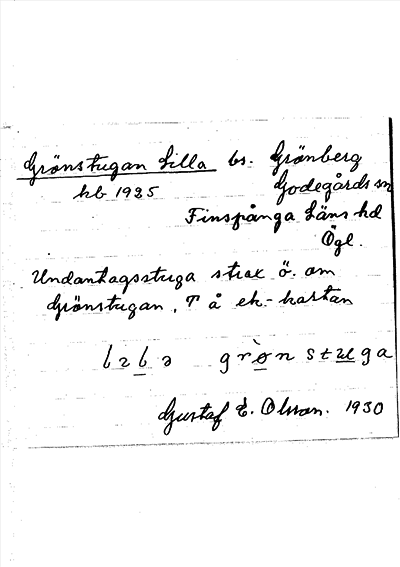 Grönstugan Lilla bs. Grönberg
hb 1925 Godegårds sn
Finspånga Läns hd
Ögl.
Undantagsstuga strax ö. om
Grönstugan, T å ek-kartan
grø̀nstuga
Gustaf E. Olsson. 1930